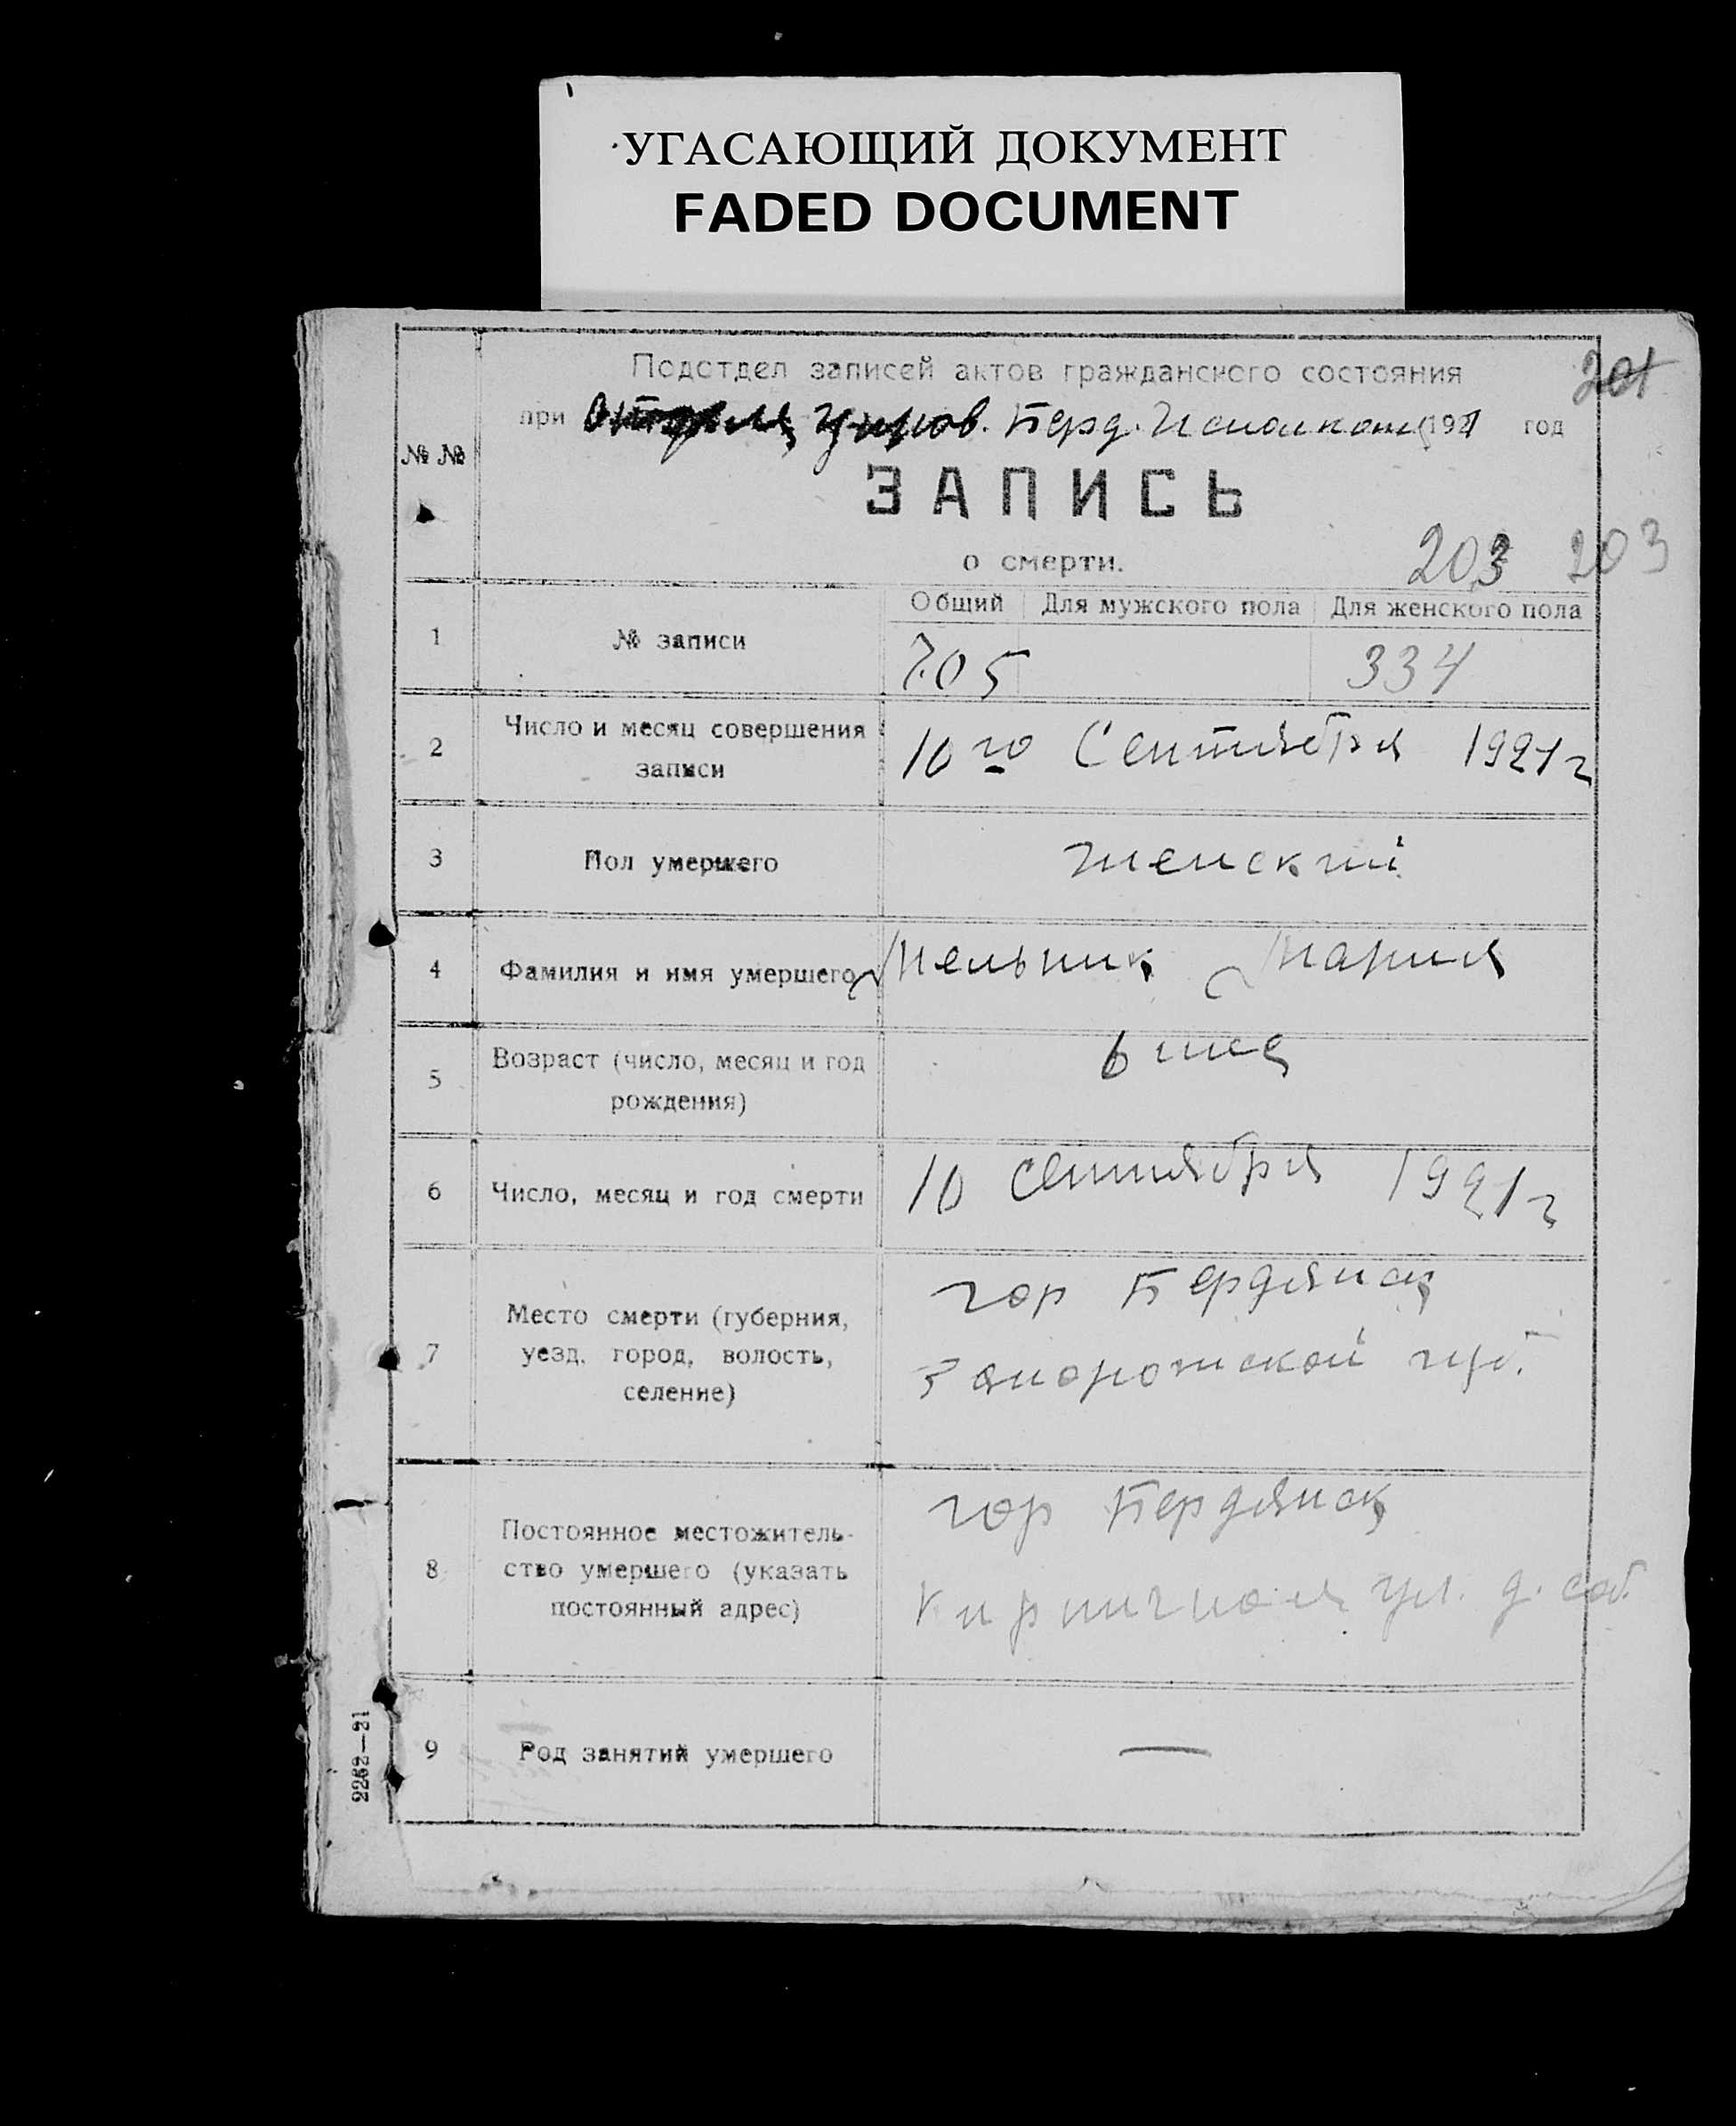 УГАСАЮЩИЙ ДОКУМЕНТ
FADED DOCUMENT
Подотдел записей актов гражданского состояния
201
при Берд. Исполкома 1921 год
№ №
ЗАПИСЬ
о смерти.
203 203
Общий Для мужского пола Для женского пола
1 № записи 705 334
2 Число и месяц совершения
записи
10го Сентября 1921 г
3 Пол умершего женский
4 Фамилия и имя умершего Мельник Мария
5 Возраст (число, месяц и год
рождения)
6 мес
6 Число, месяц и год смерти 10 сентября 1921 г
7 Место смерти (губерния,
уезд, город, волость,
селение)
гор Бердянск
Запорожской губ.
8 Постоянное местожитель-
ство умершего (указать
постоянный адрес)
гор Бердянск
Кирпичная ул. д. соб.
9 Род занятий умершего —
2262—21